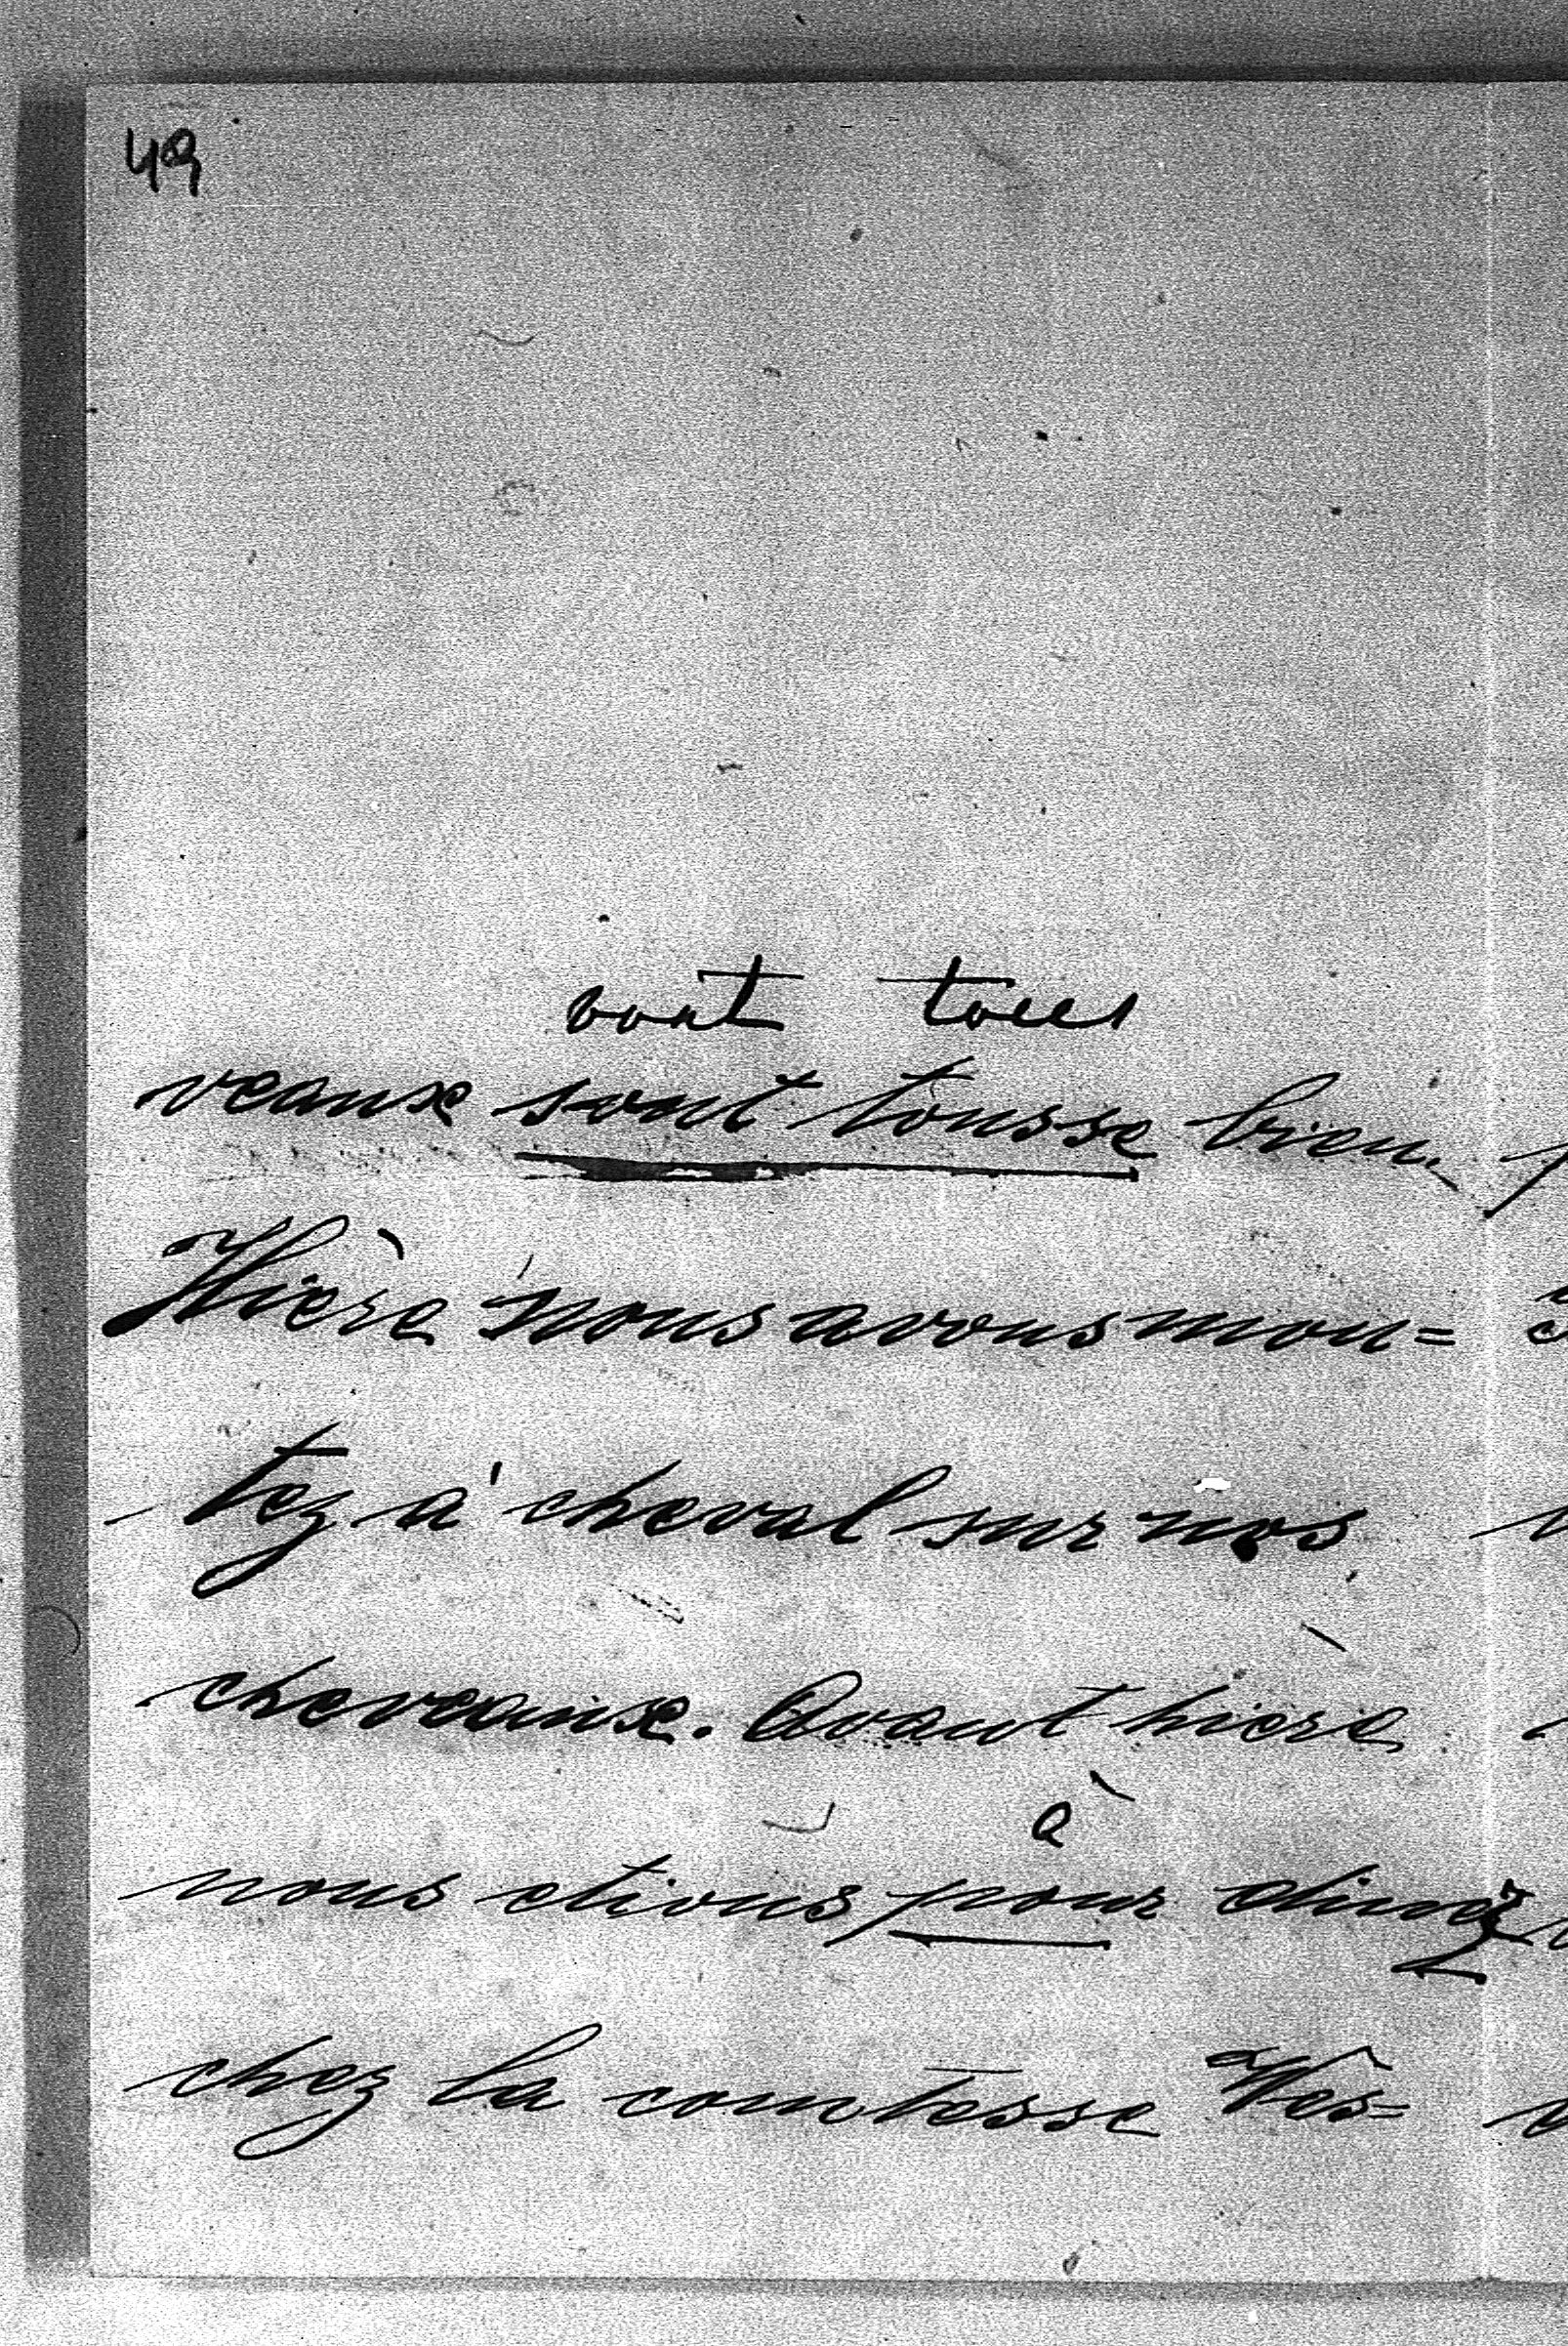 49
vont tous
veause sont tousse bien.
Hière nous avons mon=
tez à cheval sur nos
cheveause. Avant hière
à
nous etions pour diner
chez la comtesse Wes=